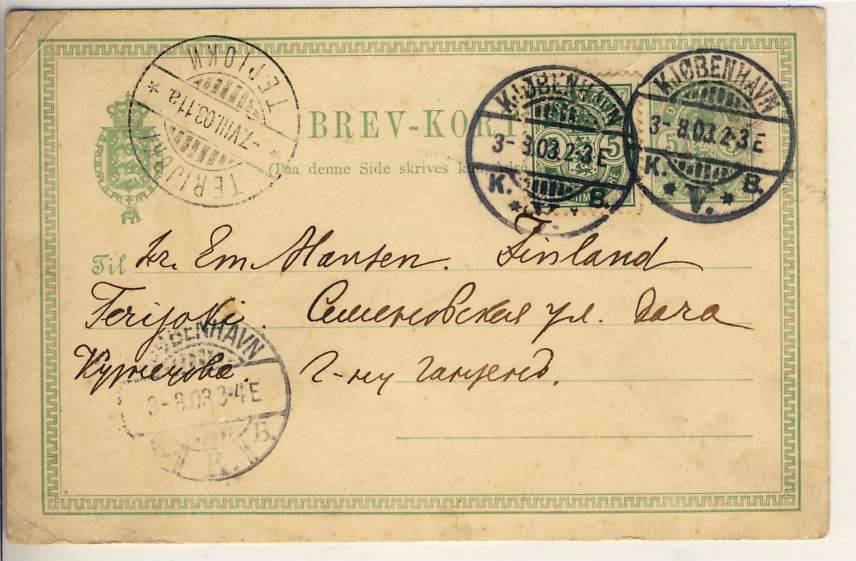 TERIJOKI
ТЕРIОКИ
-7.VIII.03.11a
BREV-KORT
(Paa denne Side skrives kun
KJØBENHAVN
3-8.03.2-3E
K. B.
* V. *
5
KJØBENHAVN
3-8.03.2-3E
K. B.
* V. *
Til Hr. Em. Hansen. Finland
Terijoki. Семеновская ул. Dача
Кузнецова. Г-ну Ганзенъ.
KJØBENHAVN
3-8.03 3-4E
K. B.